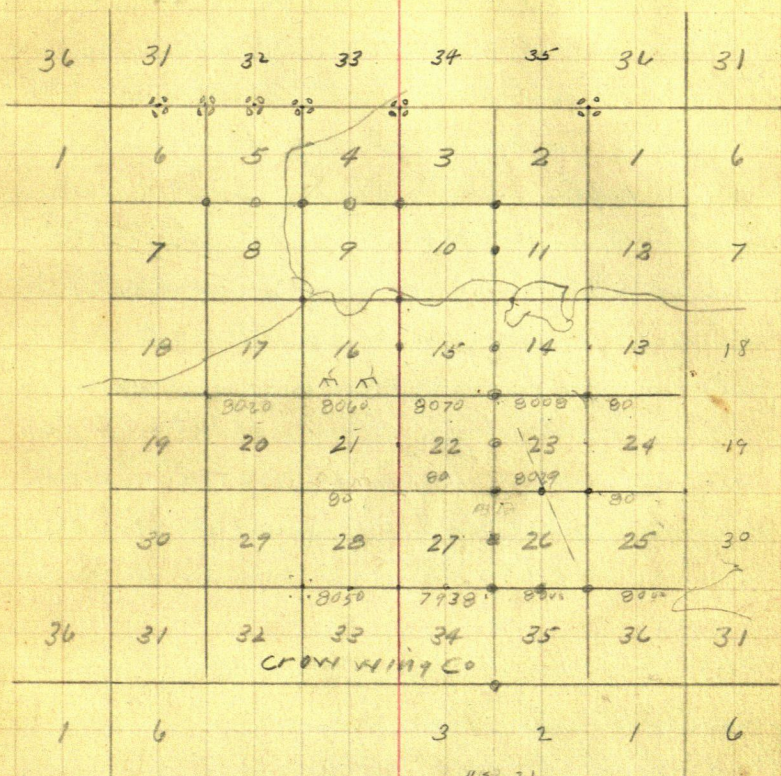 36 31 32 33 34 35 36 31
1 6 5 4 3 2 1 6
7 8 9 10 11 12 7
18 17 16 15 14 13 18
8020 8060 8070 8008 80
19 20 21 22 23 24 19
80 8029
80 80
30 29 28 27 26 25 30
8050 7938
36 31 32 33 34 35 36 31
Crow Wing Co
1 6 3 2 1 6